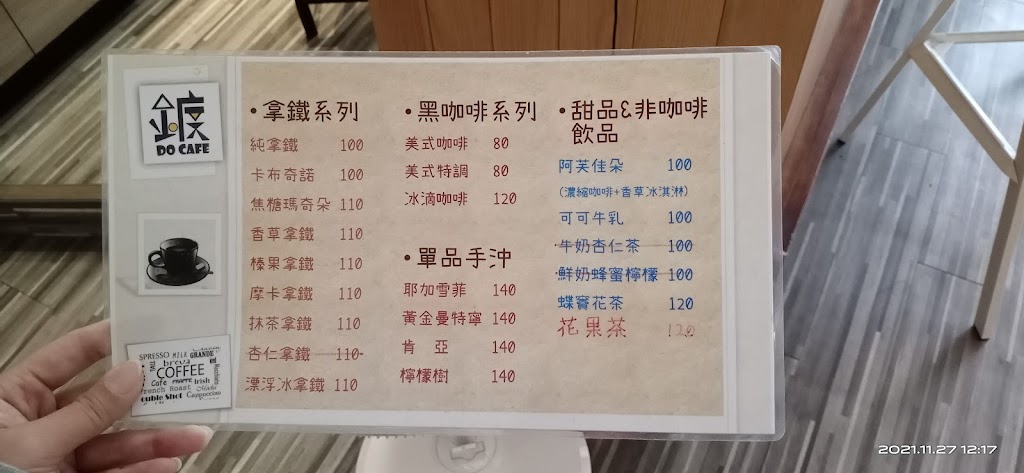 鍍
DO CAFE
SPRESSO MILK GRANDE
breva
COFFEE
Cafe FRAPPE Irish
French Roast Mocha
ouble Shot Cappuccino
•拿鐵系列
純拿鐵 100
卡布奇諾 100
焦糖瑪奇朵 110
香草拿鐵 110
榛果拿鐵 110
摩卡拿鐵 110
抹茶拿鐵 110
杏仁拿鐵 110
漂浮冰拿鐵 110
•黑咖啡系列
美式咖啡 80
美式特調 80
冰滴咖啡 120
•單品手沖
耶加雪菲 140
黃金曼特寧 140
肯亞 140
檸檬樹 140
•甜品&非咖啡
飲品
阿芙佳朵 100
(濃縮咖啡+香草冰淇淋)
可可牛乳 100
牛奶杏仁茶 100
鮮奶蜂蜜檸檬 100
蝶竇花茶 120
花果茶 120
2021.11.27 12:17